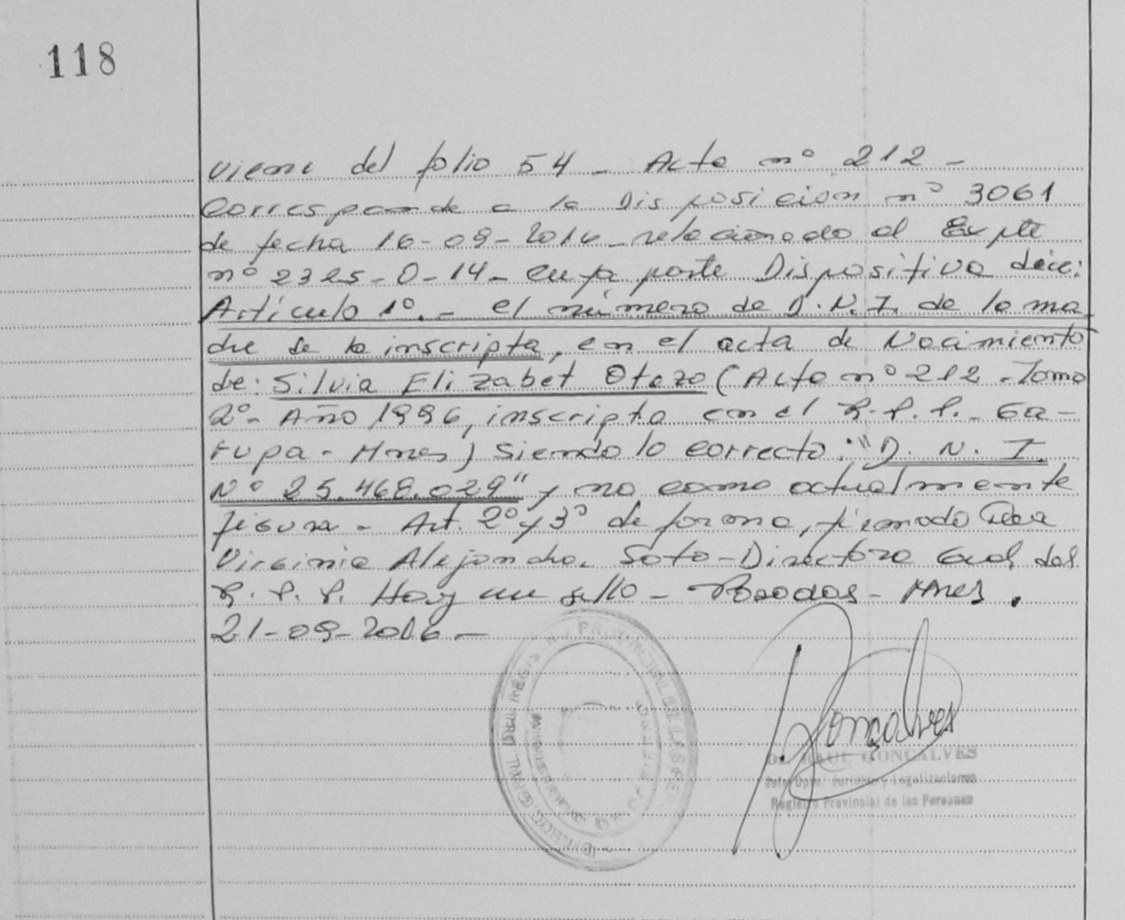 118
viene del folio 54 - Acta nº 212 -
Corresponde a la Disposición nº 3061
de fecha 16-09-2016 - relacionado al Expte
nº 2325-O-14 - cuya parte Dispositiva dice:
Artículo 1º.- el número de D.N.I. de la ma
dre de la inscripta, en el acta de Nacimiento
de: Silvia Elizabet Otazo (Acta nº 212 - Tomo
2º - Año 1996, inscripta en el R.P.P. - Ga-
rupa - Mnes) siendo lo correcto: "D. N. I.
Nº 25.468.029" y no como actualmente
figura - Art. 2º y 3º de forma, firmado
Virginia Alejandra Soto - Directora Gral del
R.P.P. Hay un sello - Posadas - Mnes.
21-09-2016 -
Gonçalves
Dr. RAUL GONCALVES
Jefe Dpto. Jurídico y Legalizaciones
Registro Provincial de las Personas